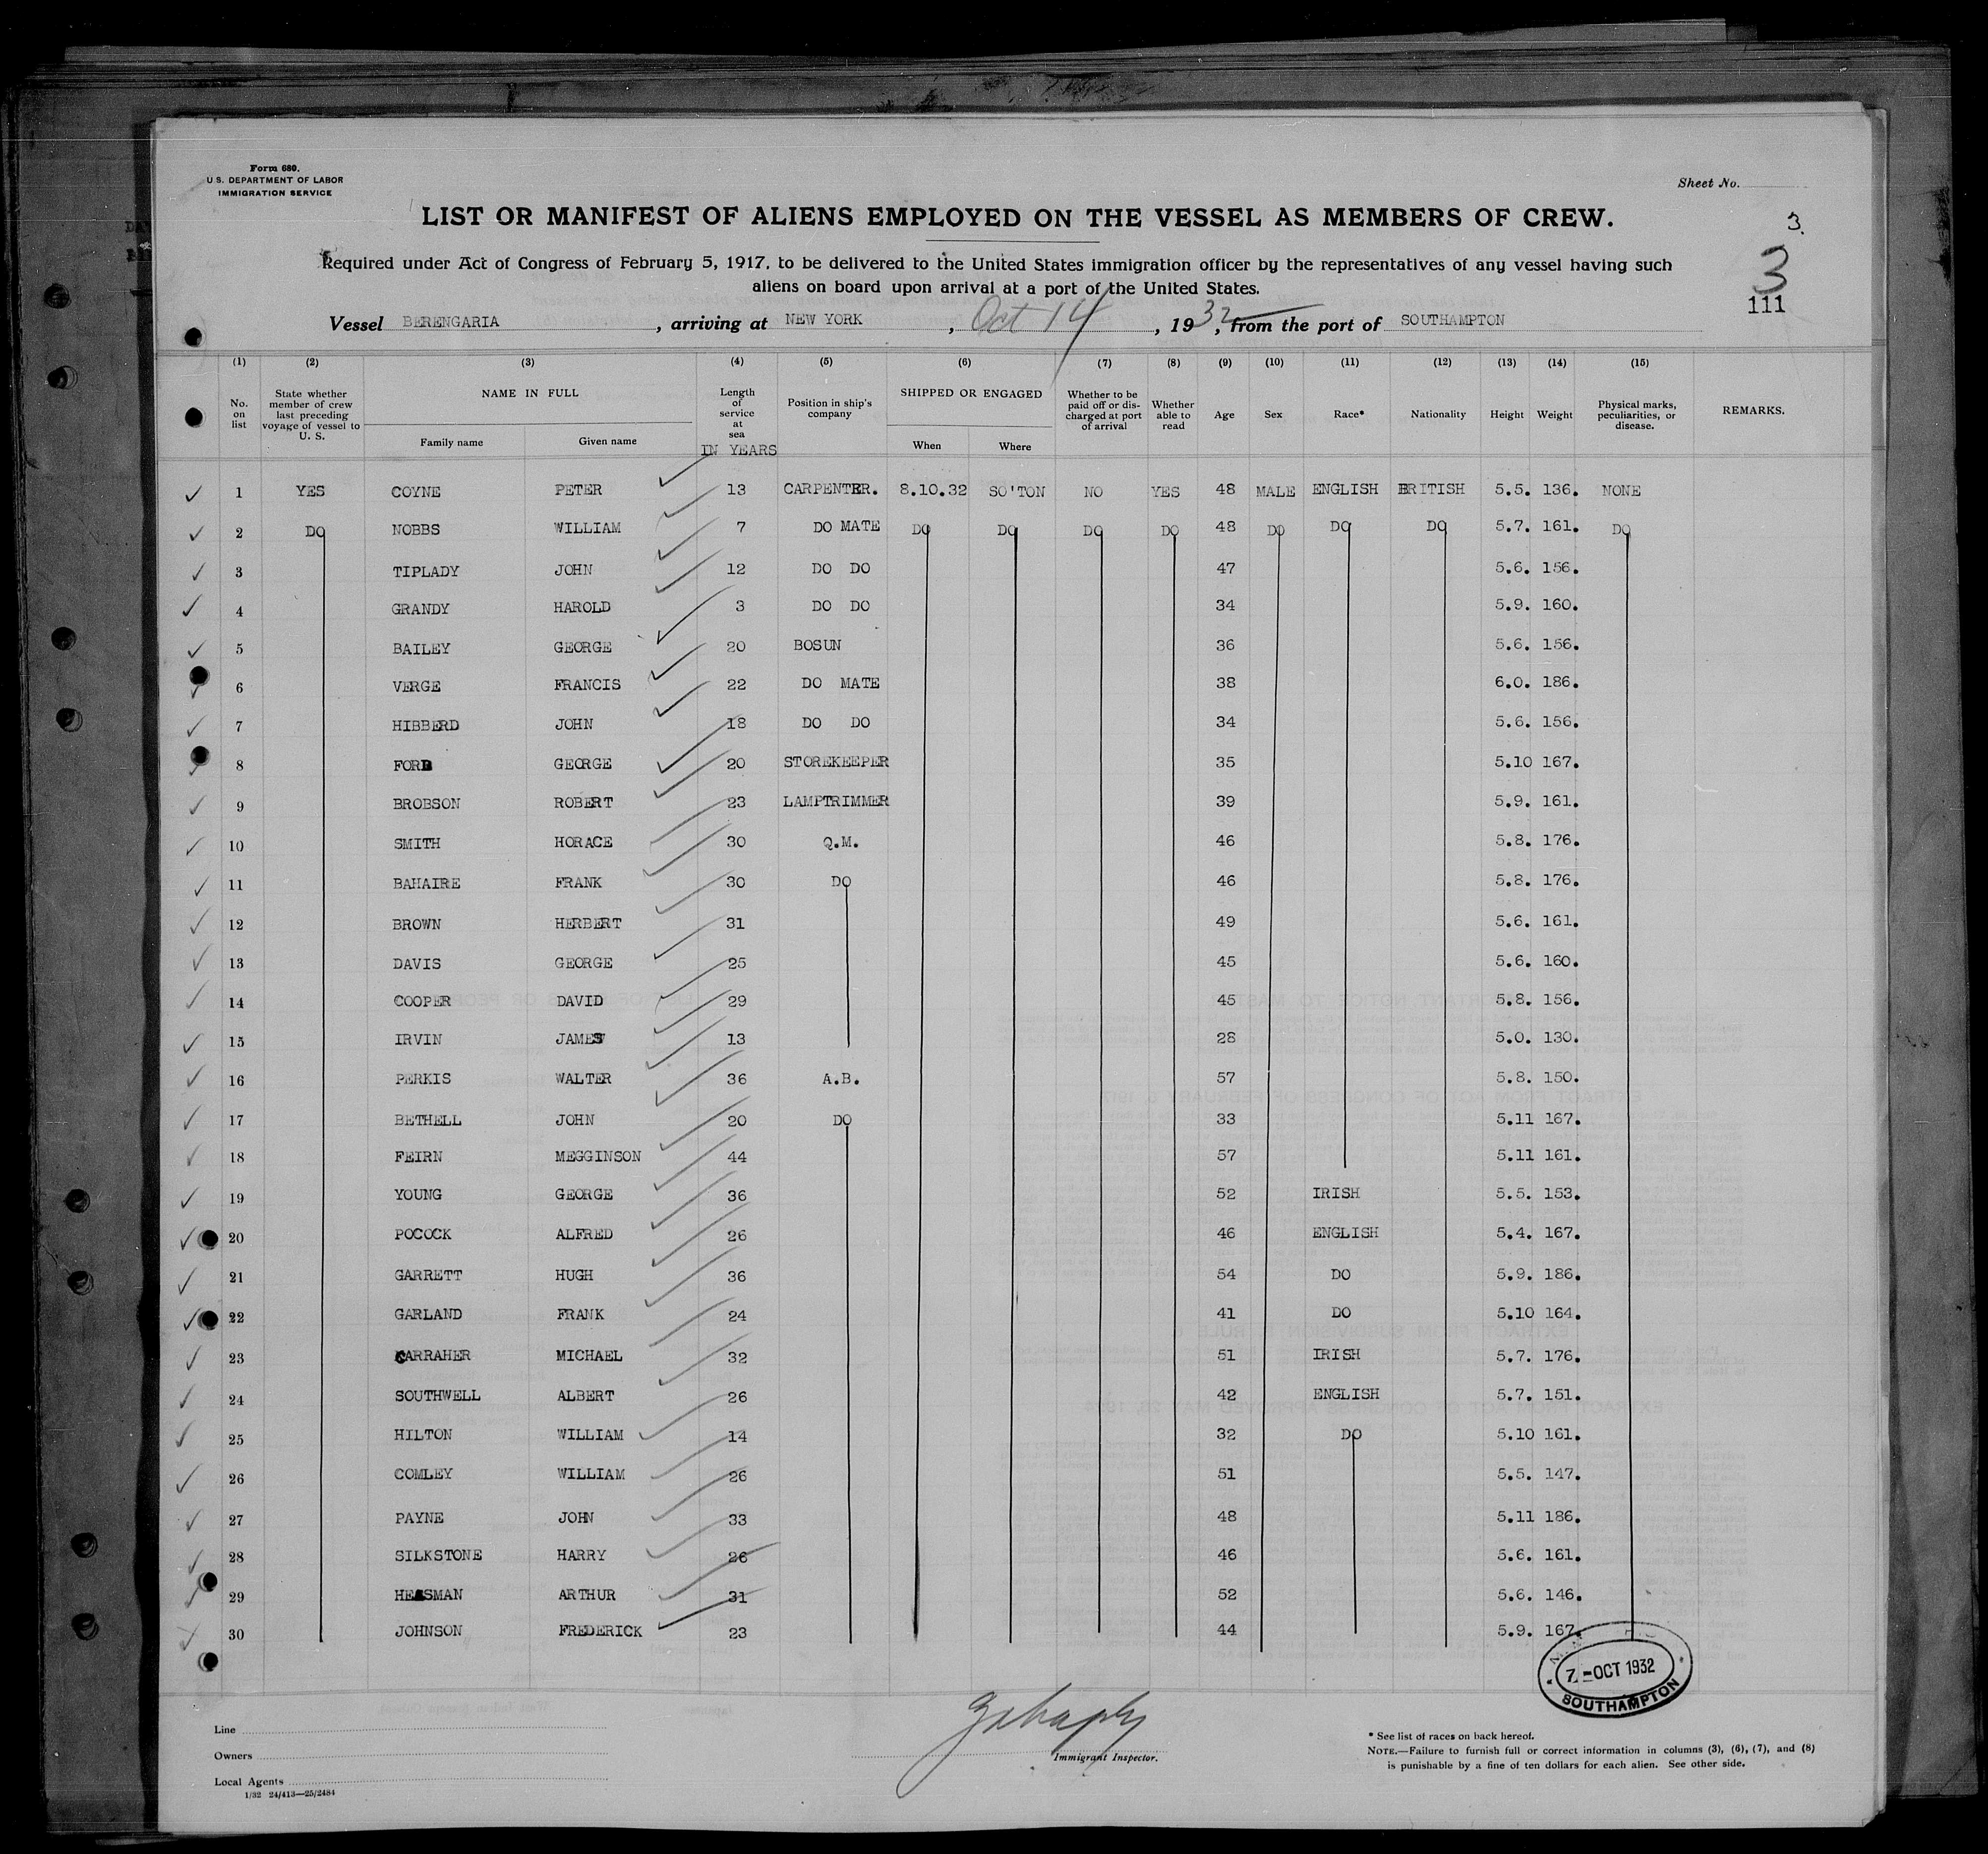 Form 680.
U.S. DEPARTMENT OF LABOR
IMMIGRATION SERVICE
Sheet No.
LIST OR MANIFEST OF ALIENS EMPLOYED ON THE VESSEL AS MEMBERS OF CREW.
3.
Required under Act of Congress of February 5, 1917, to be delivered to the United States immigration officer by the representatives of any vessel having such
aliens on board upon arrival at a port of the United States.
3
111
Vessel BERENGARIA, arriving at NEW YORK, Oct 14, 1932, from the port of SOUTHAMPTON
(1) (2) (3) (4) (5) (6) (7) (8) (9) (10) (11) (12) (13) (14) (15)
No. on list State whether member of crew last preceding voyage of vessel to U. S. NAME IN FULL Family name Given name Length of service at sea IN YEARS Position in ship's company SHIPPED OR ENGAGED When Where Whether to be paid off or discharged at port of arrival Whether able to read Age Sex Race* Nationality Height Weight Physical marks, peculiarities, or disease. REMARKS.
1 YES COYNE PETER 13 CARPENTER. 8.10.32 SO'TON NO YES 48 MALE ENGLISH BRITISH 5.5. 136. NONE
2 DO NOBBS WILLIAM 7 DO MATE DO DO DO DO 48 DO DO DO 5.7. 161. DO
3 TIPLADY JOHN 12 DO DO 47 5.6. 156.
4 GRANDY HAROLD 3 DO DO 34 5.9. 160.
5 BAILEY GEORGE 20 BOSUN 36 5.6. 156.
6 VERGE FRANCIS 22 DO MATE 38 6.0. 186.
7 HIBBERD JOHN 18 DO DO 34 5.6. 156.
8 FORD GEORGE 20 STOREKEEPER 35 5.10 167.
9 BROBSON ROBERT 23 LAMPTRIMMER 39 5.9. 161.
10 SMITH HORACE 30 Q.M. 46 5.8. 176.
11 BAHAIRE FRANK 30 DO 46 5.8. 176.
12 BROWN HERBERT 31 49 5.6. 161.
13 DAVIS GEORGE 25 45 5.6. 160.
14 COOPER DAVID 29 45 5.8. 156.
15 IRVIN JAMES 13 28 5.0. 130.
16 PERKIS WALTER 36 A.B. 57 5.8. 150.
17 BETHELL JOHN 20 DO 33 5.11 167.
18 FEIRN MEGGINSON 44 57 5.11 161.
19 YOUNG GEORGE 36 52 IRISH 5.5. 153.
20 POCOCK ALFRED 26 46 ENGLISH 5.4. 167.
21 GARRETT HUGH 36 54 DO 5.9. 186.
22 GARLAND FRANK 24 41 DO 5.10 164.
23 CARRAHER MICHAEL 32 51 IRISH 5.7. 176.
24 SOUTHWELL ALBERT 26 42 ENGLISH 5.7. 151.
25 HILTON WILLIAM 14 32 DO 5.10 161.
26 COMLEY WILLIAM 26 51 5.5. 147.
27 PAYNE JOHN 33 48 5.11 186.
28 SILKSTONE HARRY 26 46 5.6. 161.
29 HEASMAN ARTHUR 31 52 5.6. 146.
30 JOHNSON FREDERICK 23 44 5.9. 167.
7-OCT 1932
SOUTHAMPTON
Line
Owners
Local Agents
1/32 24/413—25/2484
Immigrant Inspector.
* See list of races on back hereof.
NOTE.—Failure to furnish full or correct information in columns (3), (6), (7), and (8)
is punishable by a fine of ten dollars for each alien. See other side.